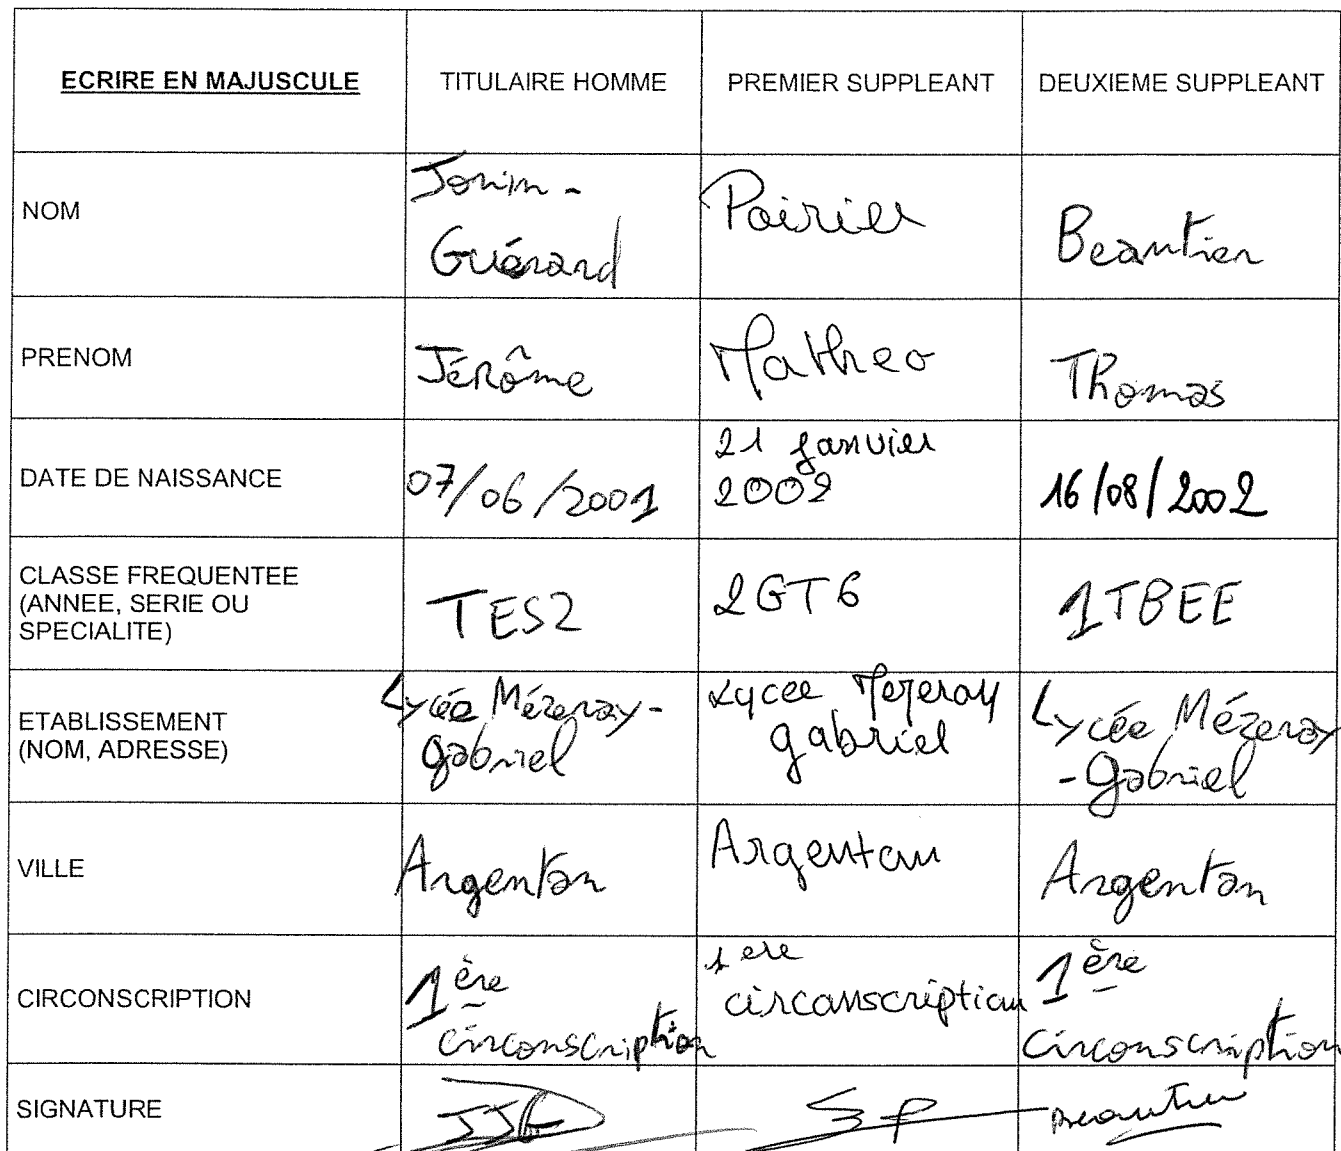 ECRIRE EN MAJUSCULE TITULAIRE HOMME PREMIER SUPPLEANT DEUXIEME SUPPLEANT
NOM
Jonin-
Guérard
Poirier
Beautier
PRENOM
Jérôme
Matheo
Thomas
DATE DE NAISSANCE
07/06/2001
21 janvier
2002
16/08/2002
CLASSE FREQUENTEE
(ANNEE, SERIE OU
SPECIALITE)
TES2
2GT6
1TBEE
ETABLISSEMENT
(NOM, ADRESSE)
Lycée Mézeray-
gabriel
Lycee Mezeray
gabriel
Lycée Mézeray
-gabriel
VILLE
Argentan
Argentan
Argentan
CIRCONSCRIPTION
1ère
circonscription
1ere
circonscription
1ère
circonscription
SIGNATURE
JJG